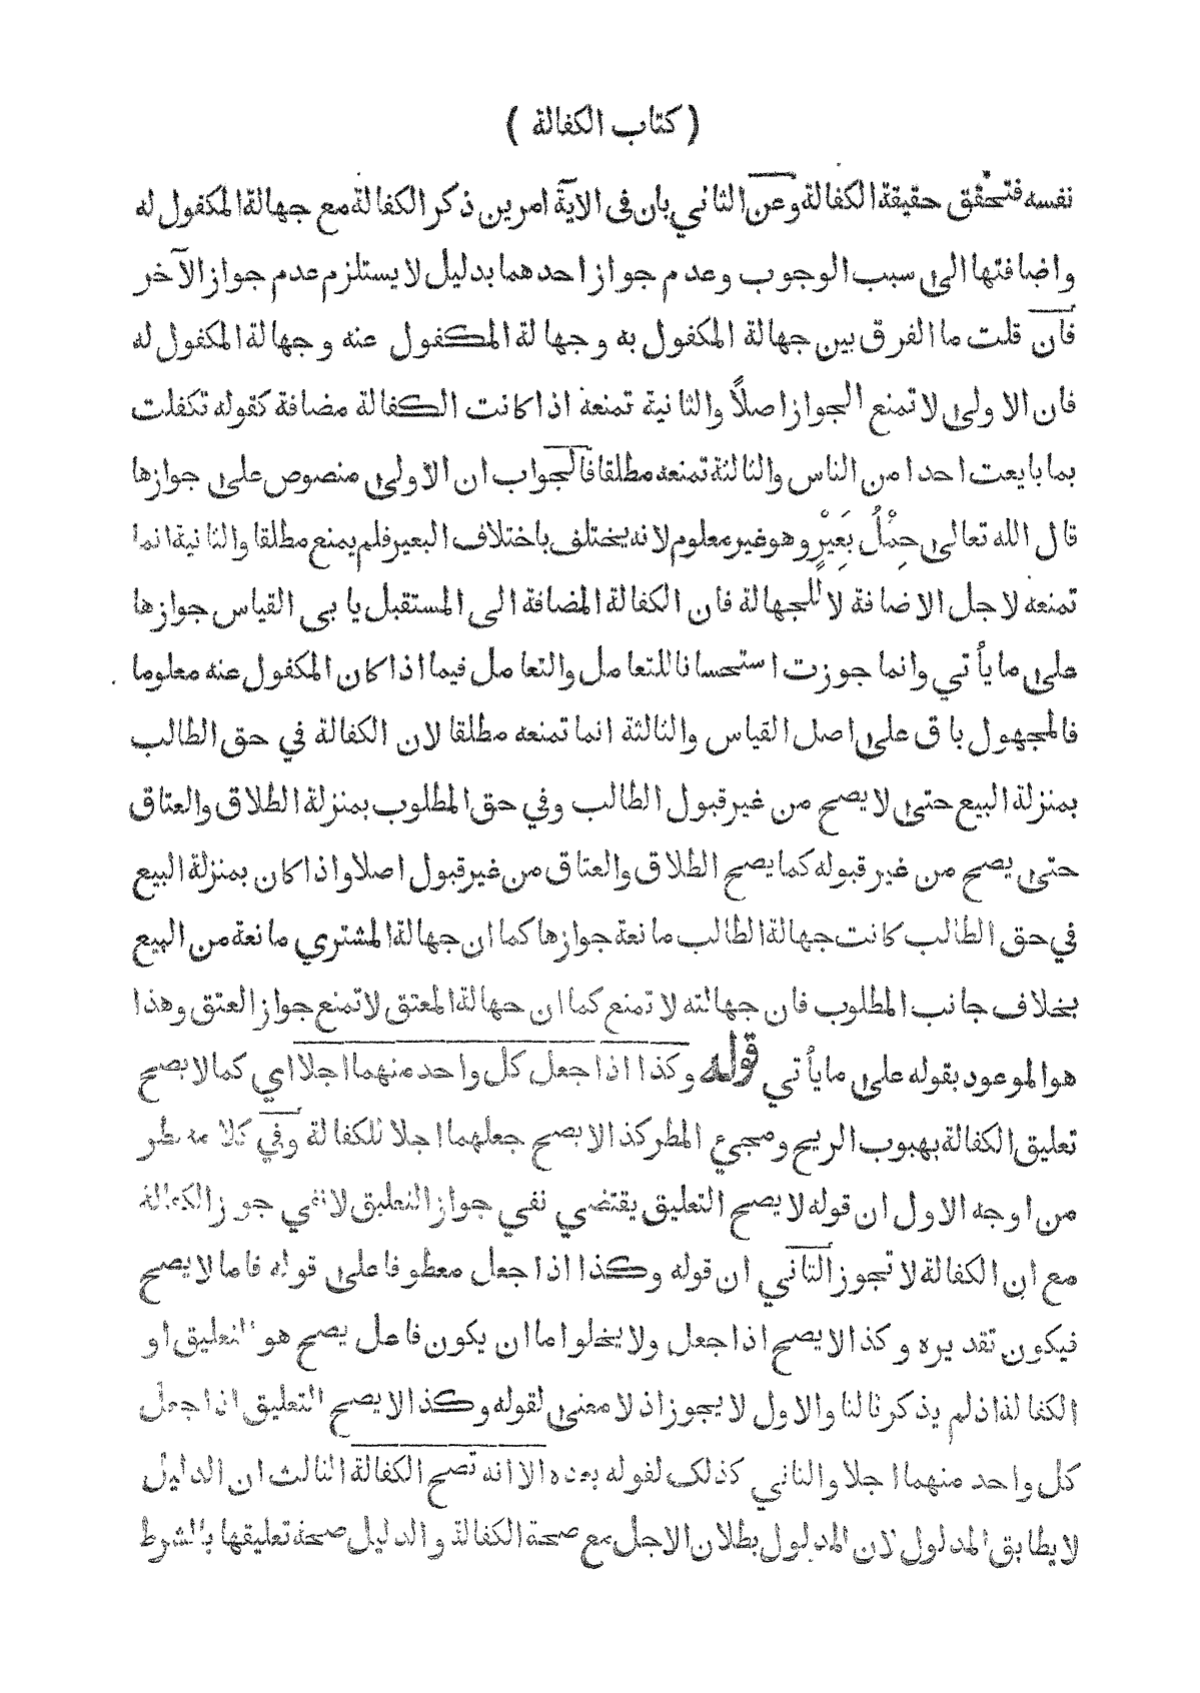 ( كتاب الكفالة )
نفسه فتحقق حقيقة الكفالة وعن الثاني بان فى الآية امرين ذكر الكفالة مع جهالة المكفول له
واضافتها الى سبب الوجوب وعدم جواز احدهما بدليل لا يستلزم عدم جواز الآخر
فان قلت ما الفرق بين جهالة المكفول به وجهالة المكفول عنه وجهالة المكفول له
فان الاولى لا تمنع الجواز اصلاً والثانية تمنعه اذا كانت الكفالة مضافة كقوله تكفلت
بما بايعت احدا من الناس والثالثة تمنعه مطلقا فالجواب ان الاولى منصوص على جوازها
قال الله تعالى حِمْلُ بَعِيْرٍ وهو غير معلوم لانه يختلف باختلاف البعير فلم يمنع مطلقا والثانية انما
تمنعه لاجل الاضافة لا للجهالة فان الكفالة المضافة الى المستقبل يابى القياس جوازها
على ما يأتي وانما جوزت استحسانا للتعامل والتعامل فيما اذا كان المكفول عنه معلوما
فالمجهول باق على اصل القياس والثالثة انما تمنعه مطلقا لان الكفالة في حق الطالب
بمنزلة البيع حتى لا يصح من غير قبول الطالب وفي حق المطلوب بمنزلة الطلاق والعتاق
حتى يصح من غير قبوله كما يصح الطلاق والعتاق من غير قبول اصلا واذا كان بمنزلة البيع
في حق الطالب كانت جهالة الطالب مانعة جوازها كما ان جهالة المشتري مانعة من البيع
بخلاف جانب المطلوب فان جهالته لا تمنع كما ان جهالة المعتق لا تمنع جواز العتق وهذا
هو الموعود بقوله على ما يأتي قوله وكذا اذا جعل كل واحد منهما اجلا اي كما لا يصح
تعليق الكفالة بهبوب الريح ومجيء المطر كذا لا يصح جعلهما اجلا للكفالة وفي كلامه نظر
من اوجه الاول ان قوله لا يصح التعليق يقتضي نفي جواز التعليق لا نفي جواز الكفالة
مع ان الكفالة لا تجوز الثاني ان قوله وكذا اذا جعل معطوفا على قوله فاما لا يصح
فيكون تقديره وكذا لا يصح اذا جعل ولا يخلوا ما ان يكون فاعل يصح هو التعليق او
الكفالة اذ لم يذكر ثالثا والاول لا يجوز اذ لا معنى لقوله وكذا لا يصح التعليق اذا جعل
كل واحد منهما اجلا والثاني كذلك لقوله بعده الا انه تصح الكفالة الثالث ان الدليل
لا يطابق المدلول لان المدلول بطلان الاجل مع صحة الكفالة والدليل صحة تعليقها بالشرط